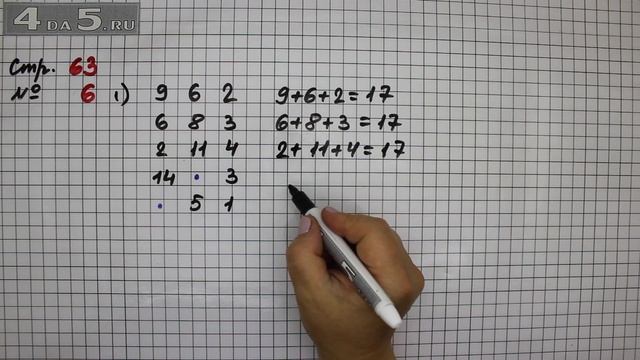 4 DA 5.RU
Стр. 63
№ 6 1) 9 6 2 9+6+2=17
6 8 3 6+8+3=17
2 11 4 2+11+4=17
14 · 3
· 5 1